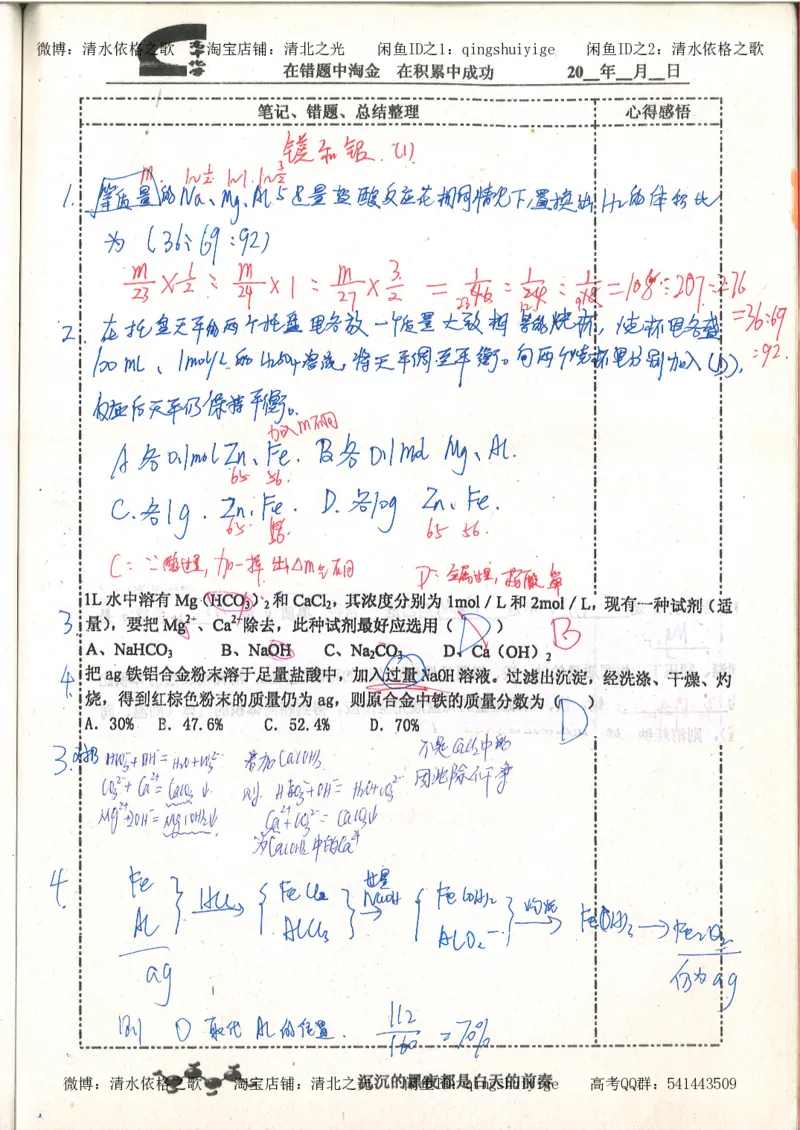 微博：清水依格之歌 淘宝店铺：清北之光 闲鱼ID之1：qingshuiyige 闲鱼ID之2：清水依格之歌
高中化学
在错题中淘金 在积累中成功 20__年__月__日
笔记、错题、总结整理 心得感悟
镁和铝.(1)
m 1~1/2 1~1 1~3/2
1. 等质量的Na、Mg、Al与足量盐酸反应在相同情况下,置换出H₂的体积比
为(36:69:92)
m/23×1/2 : m/24×1 : m/27×3/2 = 1/46 : 1/24 : 1/18 =108:207:276
=36:69
:92.
2. 在托盘天平的两个托盘里各放一个质量大致相等的烧杯,烧杯里各盛
100 mL、1mol/L的H₂SO₄溶液,将天平调至平衡。向两个烧杯里分别加入(D),
反应后天平仍保持平衡。
加入m不同
A 各0.1mol Zn、Fe. B.各0.1mol Mg、Al.
65 56.
C.各1g. Zn、Fe. D.各10g Zn、Fe.
65. 56. 65 56.
C:∵酸过量,加一样 出△m气不同
D:金属过量,按酸算
1L 水中溶有 Mg（HCO₃）₂ 和 CaCl₂，其浓度分别为 1mol / L 和 2mol / L，现有一种试剂（适
3. 量），要把 Mg²⁺、Ca²⁺除去，此种试剂最好应选用（D） B
A、NaHCO₃ B、NaOH C、Na₂CO₃ D、Ca（OH）₂
4. 把 ag 铁铝合金粉末溶于足量盐酸中，加入过量 NaOH 溶液。过滤出沉淀，经洗涤、干燥、灼
烧，得到红棕色粉末的质量仍为 ag，则原合金中铁的质量分数为（D）
A．30% B．47.6% C．52.4% D．70%
3. HCO₃⁻+OH⁻=H₂O+CO₃²⁻ 若加Ca(OH)₂ 不是CaCl₂中的
CO₃²⁻+Ca²⁺=CaCO₃↓ 则 HCO₃⁻+OH⁻=H₂O+CO₃²⁻ 因此除不干净
Mg²⁺+2OH⁻=Mg(OH)₂↓ Ca²⁺+CO₃²⁻=CaCO₃↓
为Ca(OH)₂中的Ca²⁺
4. Fe Al } HCl→ { FeCl₂ AlCl₃ } 过量NaOH→ { Fe(OH)₂ AlO₂⁻ } 灼烧→ Fe(OH)₃ → Fe₂O₃
ag 仍为ag
则 O 取代Al的位置. 112/160 =70%
沉沉的黑夜都是白天的前奏
微博：清水依格之歌 淘宝店铺：清北之光 闲鱼ID之1：qingshuiyige 高考QQ群：541443509